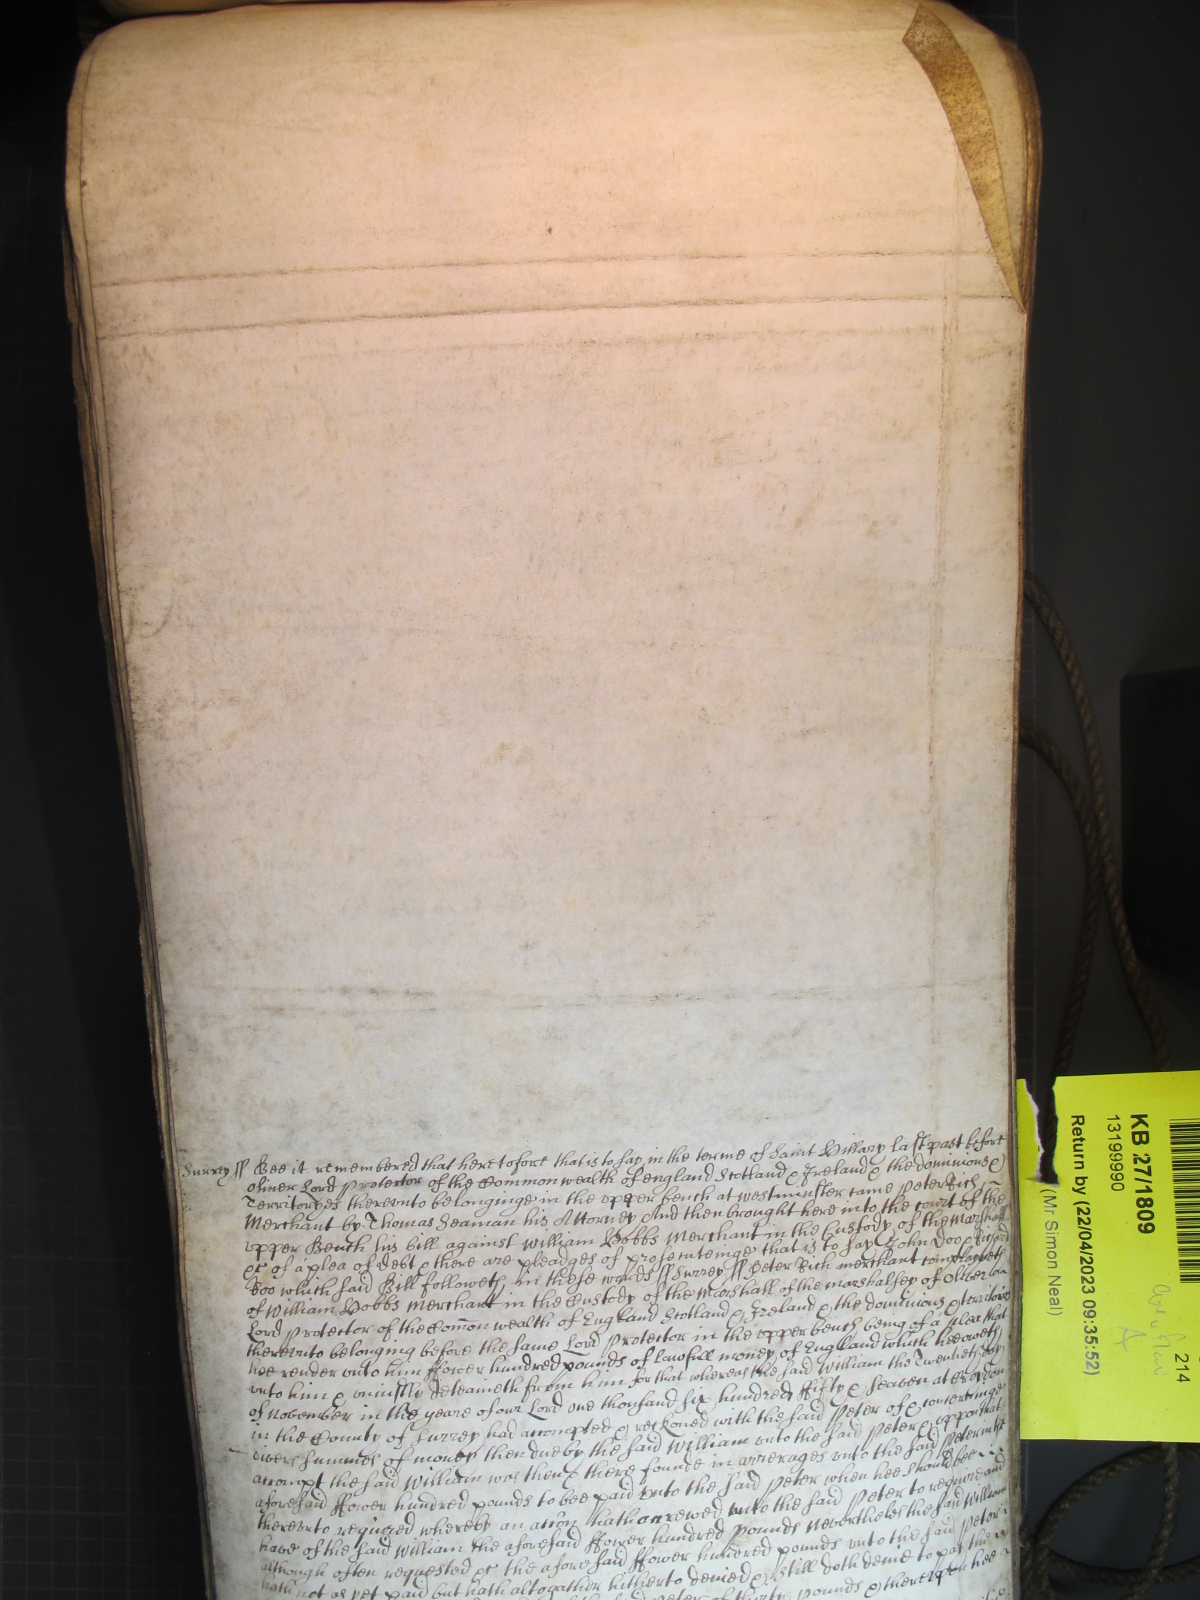 Surrey ss Bee it remembered that heretofore that is to say in the terme of Saint Hillary last past before
Oliver Lord Protector of the Common wealth of England Scotland & Ireland & the dominions &
Territoryes thereunto belonginge in the upper bench at Westminster came Peter Rich
Merchant by Thomas Seaman his Attorney And then brought here into the Court of the
upper Bench his bill against William Hobbs Merchant in the Custody of the Marshall
&c of a plea of debt & there are pleadges of prosecuteinge that is to say John Doo & Richard
Roo which said Bill followeth in these words ss Surrey ss Peter Rich merchant complayneth
of William Hobbs Merchant in the Custody of the Marshall of the marshalsey of Oliver
Lord Protector of the Common wealth of England Scotland & Ireland & the dominions & territoryes
thereunto belonging before the same Lord Protector in the upper bench being of a plea that
hee render unto him ffower hundred pounds of lawfull money of England which hee oweth
unto him & uniustly deteaineth from him for that whereas the said William the Twentieth day
of November in the yeare of our Lord one thousand six hundred ffifty & seaven at Croydon
in the County of Surrey had accompted & reckoned with the said Peter of & concerninge
divers summes of money then due by the said William unto the said Peter & uppon that
accompt the said William was then & there founde in arrerages unto the said Peter in the
aforesaid ffower hundred pounds to bee paid unto the said Peter when hee should bee
thereunto required whereby an accion hath accrewed unto the said Peter to require and
have of the said William the aforesaid ffower hundred pounds Neverthelesse the said William
although often requested &c the aforesaid ffower hundred pounds unto the said Peter
hath not as yet paid but hath altogather hitherto denied & still doth denie to pay the
Peter of thirty pounds & thereupon hee
KB 27/1809
13199990
Return by (22/04/2023 09:35:52)
(Mr Simon Neal)
214